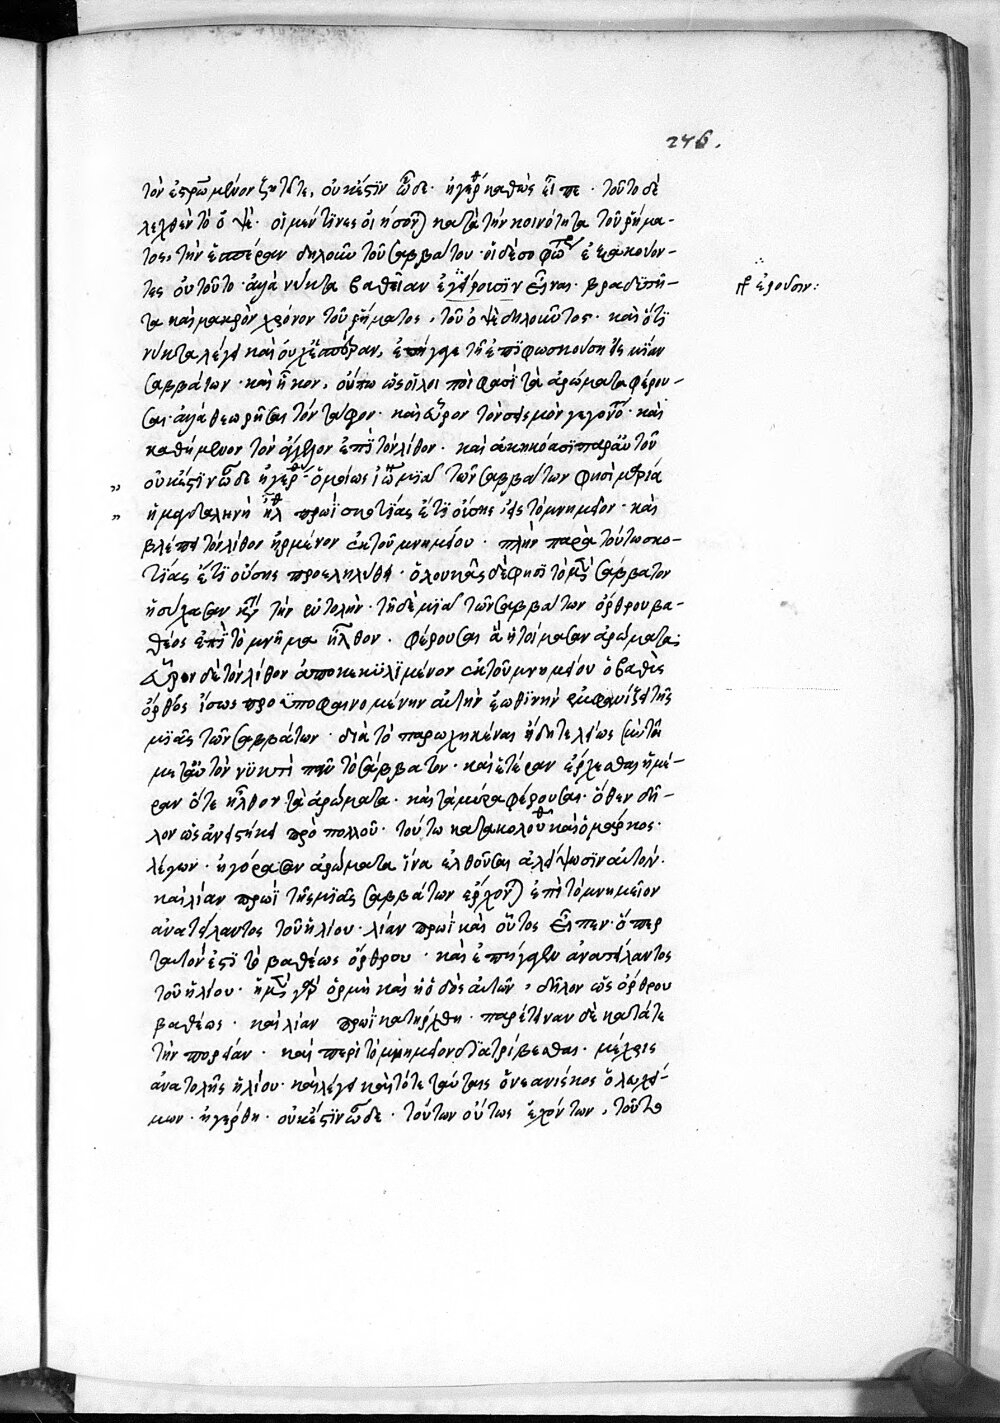 246.
τὸν ἐσταυρωμένον ζητεῖτε, οὐκ ἔστιν ὧδε· ἠγέρθη καθὼς εἶπε· τοῦτο δὲ
λεχθὲν τὸ ὀψὲ· οἱ μέν τινες οἴονται κατὰ τὴν κοινότητα τοῦ ῥήμα-
τος, τὴν ἑσπέραν δηλοῦν τοῦ σαββάτου· οἱ δὲ σοφώτερον ἐξακούον-
τες οὐ τοῦτο· ἀλλὰ νύκτα βαθεῖαν ἐγείρουσιν εἶναι· βραδύτη-
ἐροῦσιν:
τα καὶ μακρὸν χρόνον τοῦ ῥήματος, τοῦ ὀψὲ δηλοῦντος· καὶ ὅτι
νύκτα λέγει καὶ οὐχ ἑσπέραν, ἐπήγαγε τῇ ἐπιφωσκούσῃ εἰς μίαν
σαββάτων· καὶ ἧκον, οὔπω ὡς οἱ λοιποὶ φασὶ τὰ ἀρώματα φέρου-
σαι ἀλλὰ θεωρῆσαι τὸν τάφον· καὶ εὗρον τὸν σεισμὸν γεγονότα· καὶ
καθήμενον τὸν ἄγγελον ἐπὶ τὸν λίθον· καὶ ἀκηκόασι παρ' αὐτοῦ
οὐκ ἔστιν ὧδε ἠγέρθη· ὁμοίως ἰωάννης μιᾷ τῶν σαββάτων φησὶ μαρία
ἡ μαγδαληνὴ ἦλθε πρωῒ σκοτίας ἔτι οὔσης εἰς τὸ μνημεῖον· καὶ
βλέπει τὸν λίθον ἠρμένον ἐκ τοῦ μνημείου· πλὴν παρὰ τούτω σκο-
τίας ἔτι οὔσης προεληλύθει· ὁ λουκᾶς δέ φησι τὸ μὲν σάββατον
ἡσύχασαν κατὰ τὴν ἐντολὴν· τῇ δὲ μιᾷ τῶν σαββάτων ὄρθρου βα-
θέος ἐπὶ τὸ μνῆμα ἦλθον· φέρουσαι ἃ ἡτοίμασαν ἀρώματα·
εὗρον δὲ τὸν λίθον ἀποκεκυλισμένον ἐκ τοῦ μνημείου ὁ βαθὺς
ὄρθρος ἴσως προϋποφαινομένην αὐτὴν ἑωθινὴν ἐμφανίζει τῆς
μιᾶς τῶν σαββάτων· διὰ τὸ παρωχηκέναι ἤδη τελείως σὺν τῇ
μετ' αὐτὸν νυκτὶ πᾶν τὸ σάββατον· καὶ ἑτέραν ἄρχεσθαι ἡμέ-
ραν ὅτε ἦλθον τὰ ἀρώματα· καὶ τὰ μύρα φέρουσαι· ὅθεν δῆ-
λον ὡς ἀνειστήκει πρὸ πολλοῦ· τούτω κατακολουθεῖ καὶ ὁ μάρκος·
λέγων· ἠγόρασαν ἀρώματα ἵνα ἐλθοῦσαι ἀλείψωσιν αὐτόν·
καὶ λίαν πρωῒ τῆς μιᾶς σαββάτων ἔρχονται ἐπὶ τὸ μνημεῖον
ἀνατείλαντος τοῦ ἡλίου· λίαν πρωῒ καὶ οὗτος εἶπεν· ὅπερ
ταυτόν ἐστι τῷ βαθέως ὄρθρου· καὶ ἐπήγαγεν ἀνατείλαντος
τοῦ ἡλίου· ἡ μὲν γὰρ ὁρμὴ καὶ ἡ ὁδὸς αὐτῶν, δῆλον ὡς ὄρθρου
βαθέως· καὶ λίαν πρωῒ κατήρχθη· παρέτειναν δὲ κατά τε
τὴν πορείαν· καὶ περὶ τὸ μνημεῖον διατρίβεσθαι· μέχρις
ἀνατολῆς ἡλίου· καὶ λέγει καὶ τότε ταύταις ὁ νεανίσκος ὁ λευχεί-
μων· ἠγέρθη· οὐκ ἔστιν ὧδε· τούτων οὕτως ἐχόντων, τοῦτο